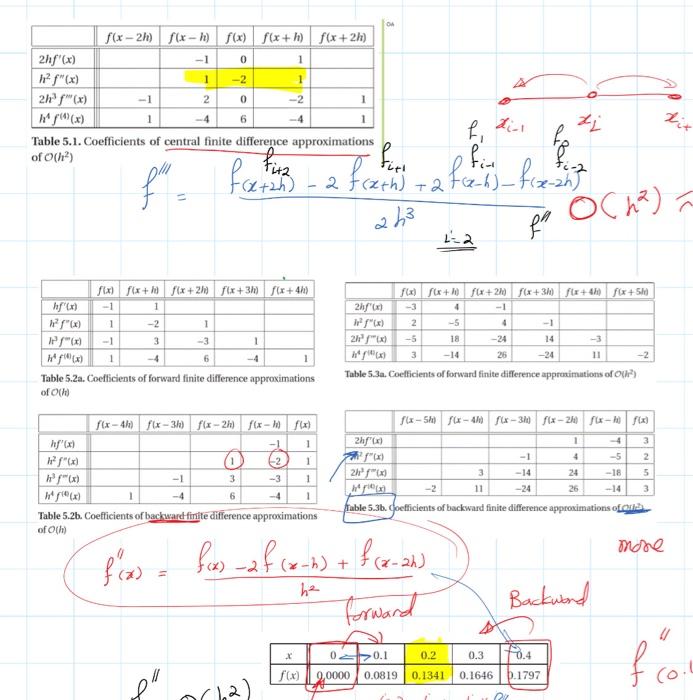 OA
f(x − 2h) f(x − h) f(x) f(x + h) f(x + 2h)
2hf′(x) −1 0 1
h² f″(x) 1 −2 1
2h³ f‴(x) −1 2 0 −2 1
h⁴ f⁽⁴⁾(x) 1 −4 6 −4 1
Table 5.1. Coefficients of central finite difference approximations
of O(h²)
x_{i-1} x_i x_{i+
f_{i+2} f_{i+1} f_1 f_{i-1} f_0 f_{i-2}
f''' = f(x+2h) - 2 f(x+h) + 2 f(x-h) - f(x-2h)
2h³
i=2
f''' O(h²)
f(x) f(x + h) f(x + 2h) f(x + 3h) f(x + 4h)
hf′(x) −1 1
h² f″(x) 1 −2 1
h³ f‴(x) −1 3 −3 1
h⁴ f⁽⁴⁾(x) 1 −4 6 −4 1
Table 5.2a. Coefficients of forward finite difference approximations
of O(h)
f(x) f(x + h) f(x + 2h) f(x + 3h) f(x + 4h) f(x + 5h)
2hf′(x) −3 4 −1
h² f″(x) 2 −5 4 −1
2h³ f‴(x) −5 18 −24 14 −3
h⁴ f⁽⁴⁾(x) 3 −14 26 −24 11 −2
Table 5.3a. Coefficients of forward finite difference approximations of O(h²)
f(x − 4h) f(x − 3h) f(x − 2h) f(x − h) f(x)
hf′(x) −1 1
h² f″(x) 1 −2 1
h³ f‴(x) −1 3 −3 1
h⁴ f⁽⁴⁾(x) 1 −4 6 −4 1
Table 5.2b. Coefficients of backward finite difference approximations
of O(h)
f(x − 5h) f(x − 4h) f(x − 3h) f(x − 2h) f(x − h) f(x)
2hf′(x) 1 −4 3
h² f″(x) −1 4 −5 2
2h³ f‴(x) 3 −14 24 −18 5
h⁴ f⁽⁴⁾(x) −2 11 −24 26 −14 3
Table 5.3b. Coefficients of backward finite difference approximations of O(h²)
more
f''(x) = f(x) - 2f(x-h) + f(x-2h)
h²
forward Backward
x 0 0.1 0.2 0.3 0.4
f(x) 0.0000 0.0819 0.1341 0.1646 0.1797
f''(0.
f'' O(h²)